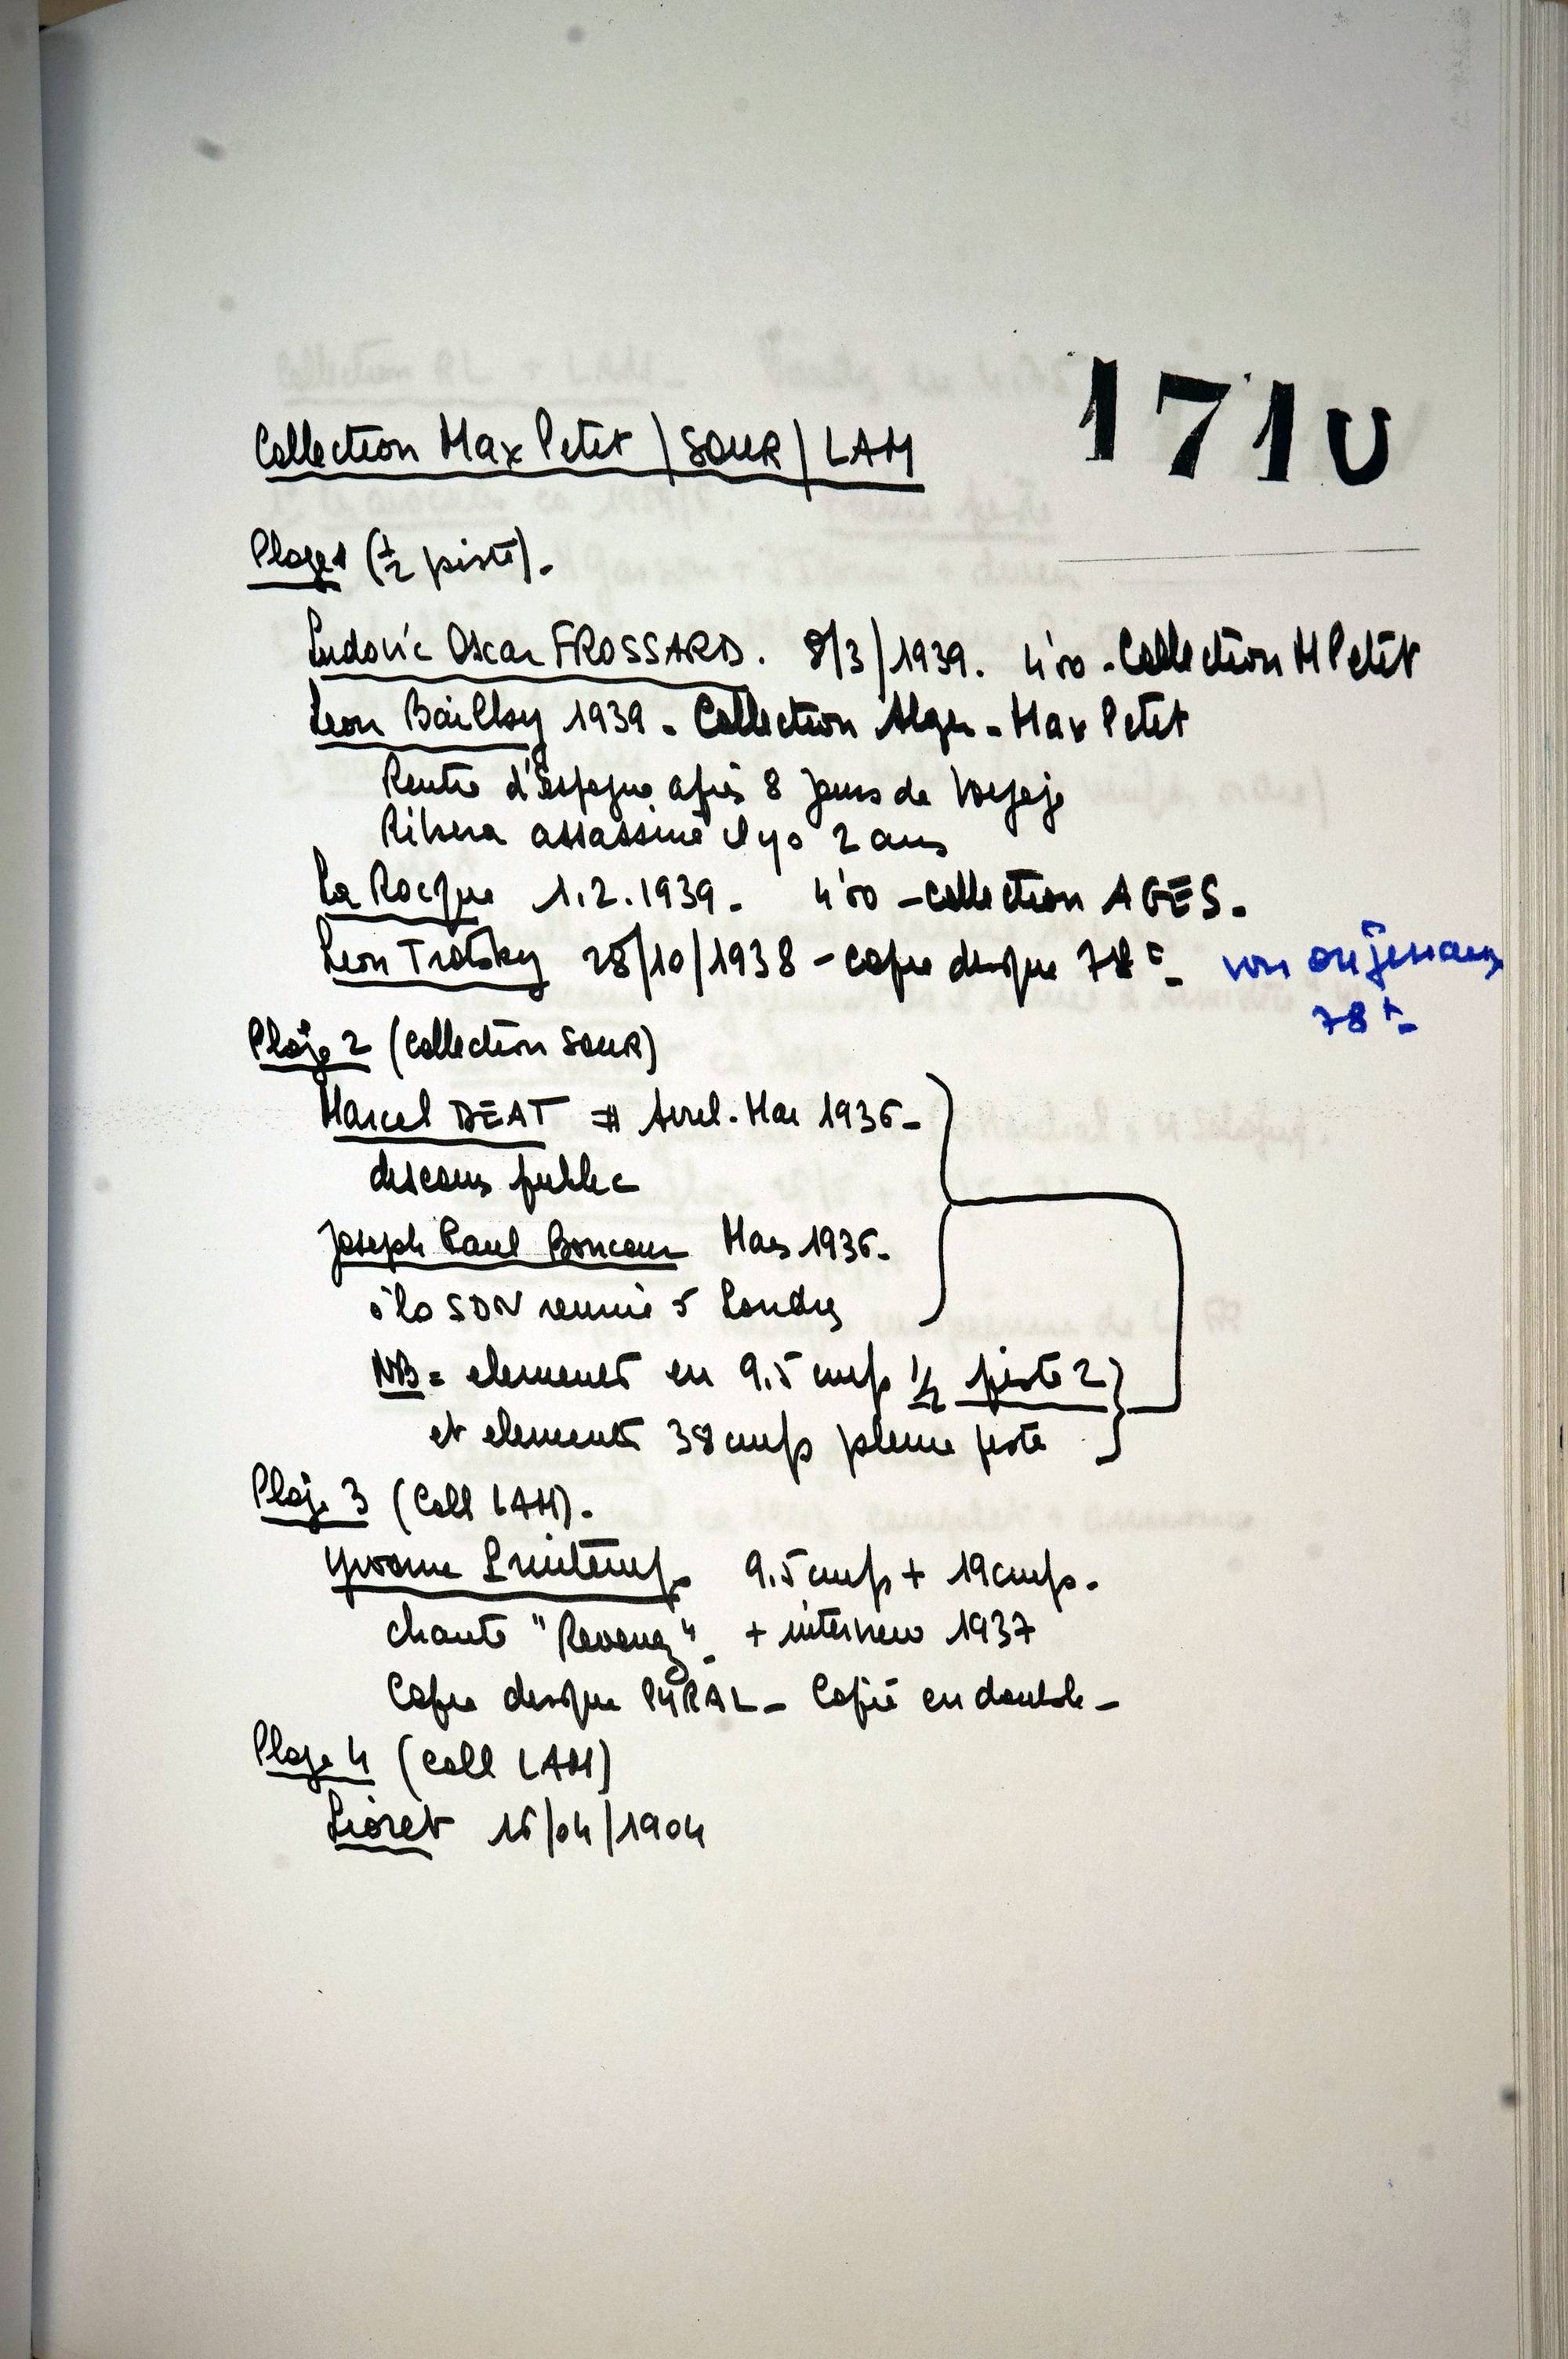 1710
Collection Max Petit / SOUR / LAM
Plage 1 (½ piste).
Ludovic Oscar FROSSARD. 8/3/1939. 4'00 - Collection M Petit
Leon Bailby 1939 - Collection Alger - Max Petit
Rentre d'Espagne après 8 jours de Voyage
Ribera assassiné il y a 2 ans
La Rocque 1.2.1939 - 4'00 - collection AGES.
Leon Trotsky 28/10/1938 - copie disque 78t - voir originaux
78t -
Plage 2 (collection SOUR)
Marcel DEAT # Avril-Mai 1936 -
discours public
Joseph Paul Boncour Mars 1936 -
à la SDN reunie à Londres
NB = elements en 9.5 cmps ½ piste 2
et elements 38 cmps pleine piste
Plage 3 (Coll LAM).
Yvonne Printemps 9.5 cmps + 19 cmps.
chante "Revenez". + interview 1937
Copie disque PYRAL - Copié en double -
Plage 4 (coll LAM)
Lioret 16/04/1904